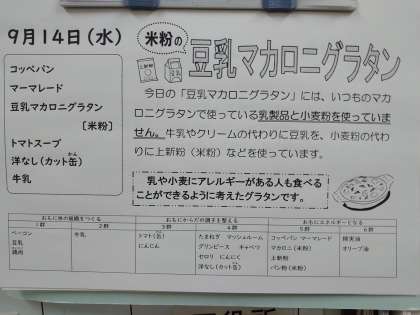 9月14日(水)
コッペパン
マーマレード
豆乳マカロニグラタン
[米粉]
トマトスープ
洋なし(カット缶)
牛乳
米粉の
豆乳マカロニグラタン
今日の「豆乳マカロニグラタン」には、いつものマカ
ロニグラタンで使っている乳製品と小麦粉を使っていま
せん。牛乳やクリームの代わりに豆乳を、小麦粉の代わ
りに上新粉(米粉)などを使っています。
乳や小麦にアレルギーがある人も食べる
ことができるように考えたグラタンです。
おもに体の組織をつくる
おもにからだの調子を整える
おもにエネルギーとなる
1群 2群 3群 4群 5群 6群
ベーコン 牛乳 トマト(缶) たまねぎ マッシュルーム コッペパン マーマレード
豆乳 にんじん グリンピース キャベツ マカロニ(米粉) オリーブ油
鶏肉 セロリ にんにく 上新粉
洋なし(カット缶) パン粉(米粉)